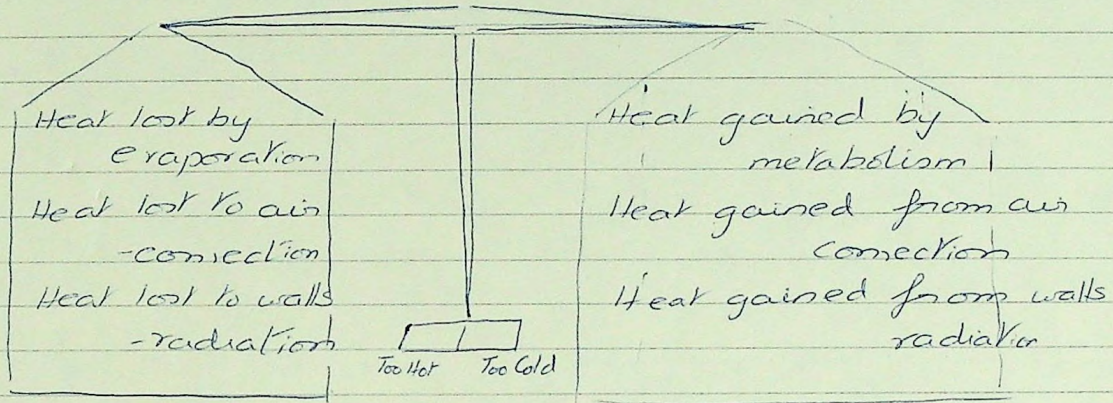 Heat lost by
evaporation
Heat lost to air
-convection
Heat lost to walls
-radiation
Too Hot Too Cold
Heat gained by
metabolism
Heat gained from air
convection
Heat gained from walls
radiation